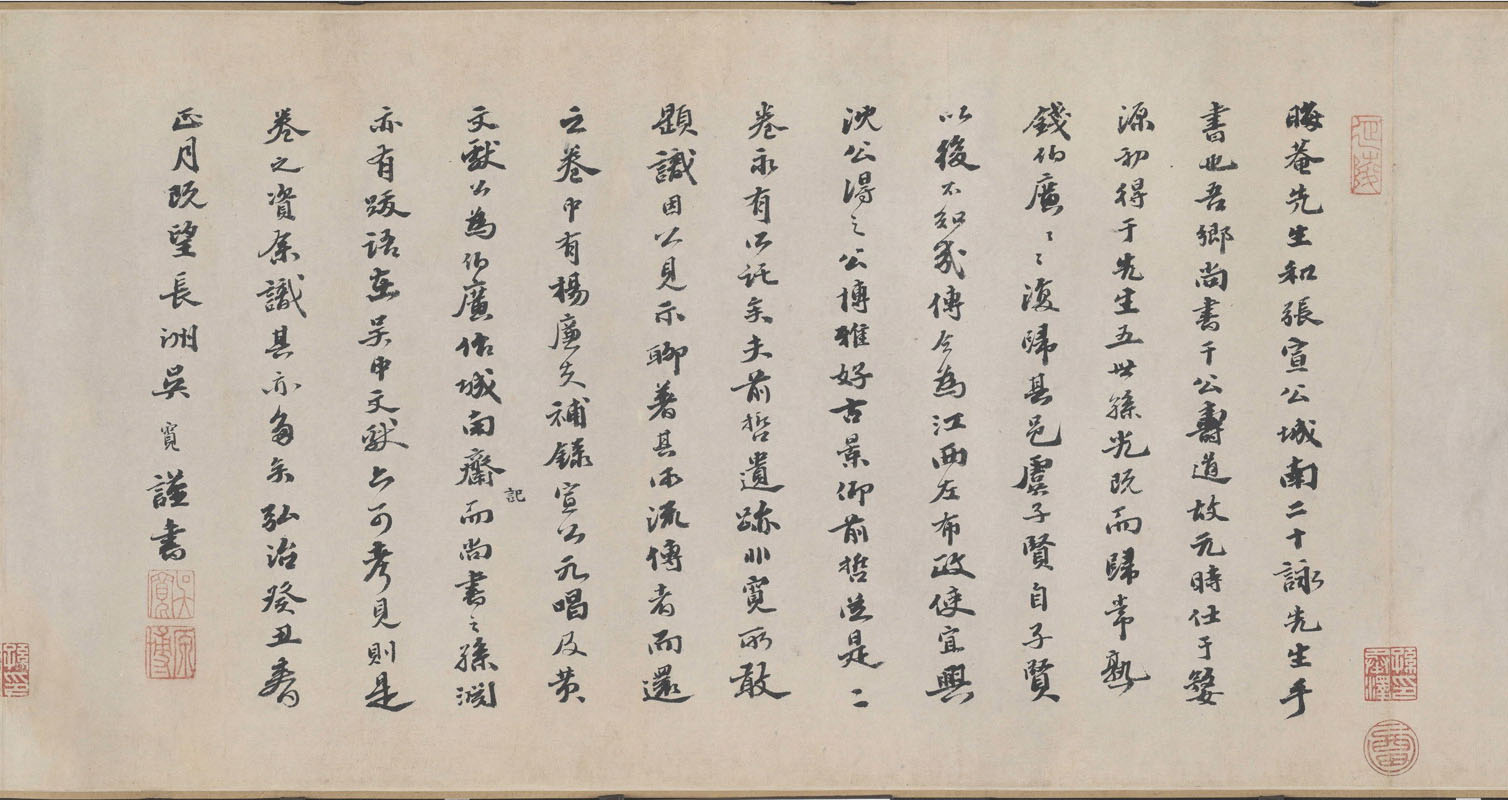 晦菴先生和張宣公城南二十詠先生手
書也吾鄉尚書干公壽道故元時仕于婺
源初得于先生五世孫光既而歸常熟
錢伯廣〻復歸其邑虞子賢自子賢
以後不知幾傳今為江西左布政使宜興
沈公得之公博雅好古景仰前哲從是二
卷永有所託矣夫前哲遺跡非寬所敢
題識因以見示聊著其所流傳者而還
之卷中有楊廉夫補錄宣公元唱及黃
文獻公為伯廣作城南齋記而尚書之孫淵
亦有跋語在吳中文獻亦可考見則是
卷之資余識其亦多矣弘治癸丑春
正月既望長洲吳寬謹書
吳寬
原博